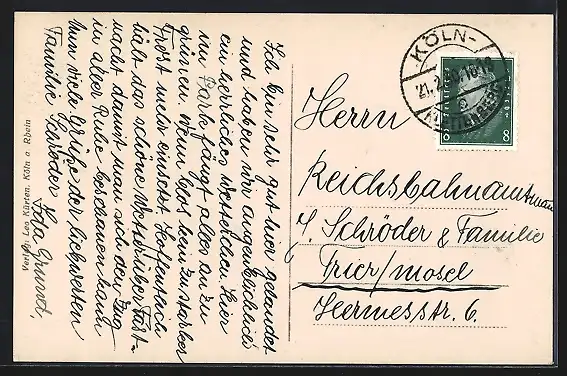 Ich bin sehr gut hier gelandet
und haben wir augenblicklich
ein herrliches Wetterchen. Hier
im Park fängt alles an zu
grünen. Wenn bloss kein zu starker
Frost mehr einsetzt. Hoffentlich
hält das schöne Wetter über Fast-
nacht damit man sich den Zug
in aller Ruhe beschauen kann
Nun viele Grüße der liebwerten
Familie Schröder Ida Grundt,
Verlag: Leo Kürten, Köln a. Rhein
KÖLN-
21.2.
8 8
Herrn
Reichsbahnamtmann
J. Schröder & Familie
Trier/mosel
Hermesstr. 6.